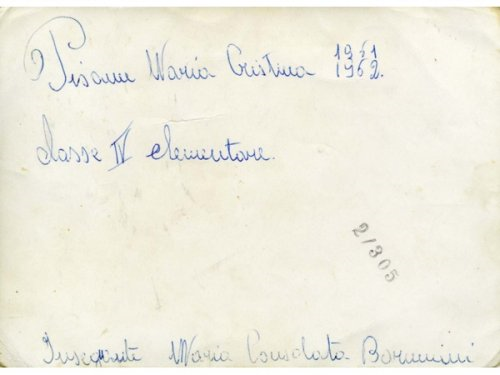 Pisanu Maria Cristina 1961
1962.
classe IV elementare.
2/305
Insegnante Maria Consolata